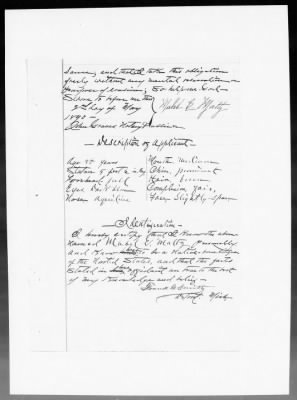 same; and that I take this obligation
freely without any mental reservation or
purpose of evasion; So help me God.
Sworn to before me this
2nd day of May
1890 Mabel E. Maltz
Notary Public
Description of applicant
Age 22 years Mouth medium
Stature 5 feet Chin, prominent
Forehead high Hair, brown
Eyes Dark Complexion fair,
Nose, Aquiline Face, Slightly
Identification
I hereby certify that I know the above
named Mabel E. Maltz personally
and know to be a Native
of the United States, and that the facts
stated in affidavit are true to the best
of my knowledge and belief.
Smith
Detroit Mich